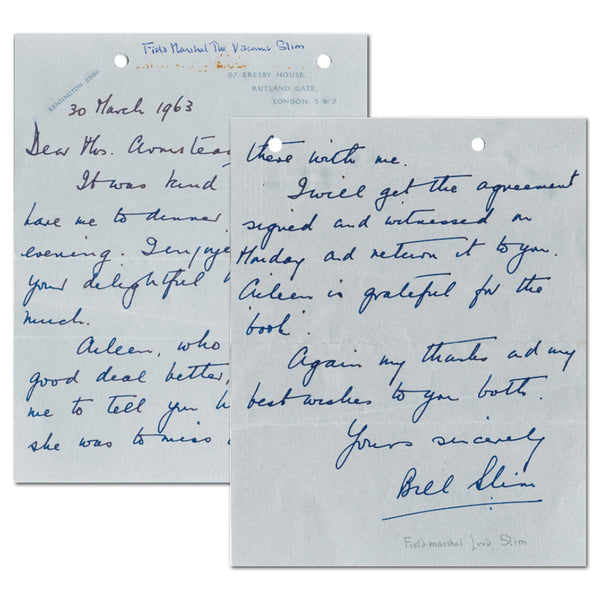 Field Marshal The Viscount Slim
KENSINGTON 2580.
57 ERESBY HOUSE,
RUTLAND GATE,
LONDON, S.W.7
30 March 1963
Dear Mrs. Armstea
It was kind
have me to dinner
evening. I enjoye
your delightful
much.
Aileen, who
good deal better,
me to tell you h
she was to miss
there with me.
I will get the agreement
signed and witnessed on
Monday and return it to you.
Aileen is grateful for the
'book'.
Again my thanks and my
best wishes to you both.
Yours sincerely
Bill Slim
Field-marshal Lord Slim